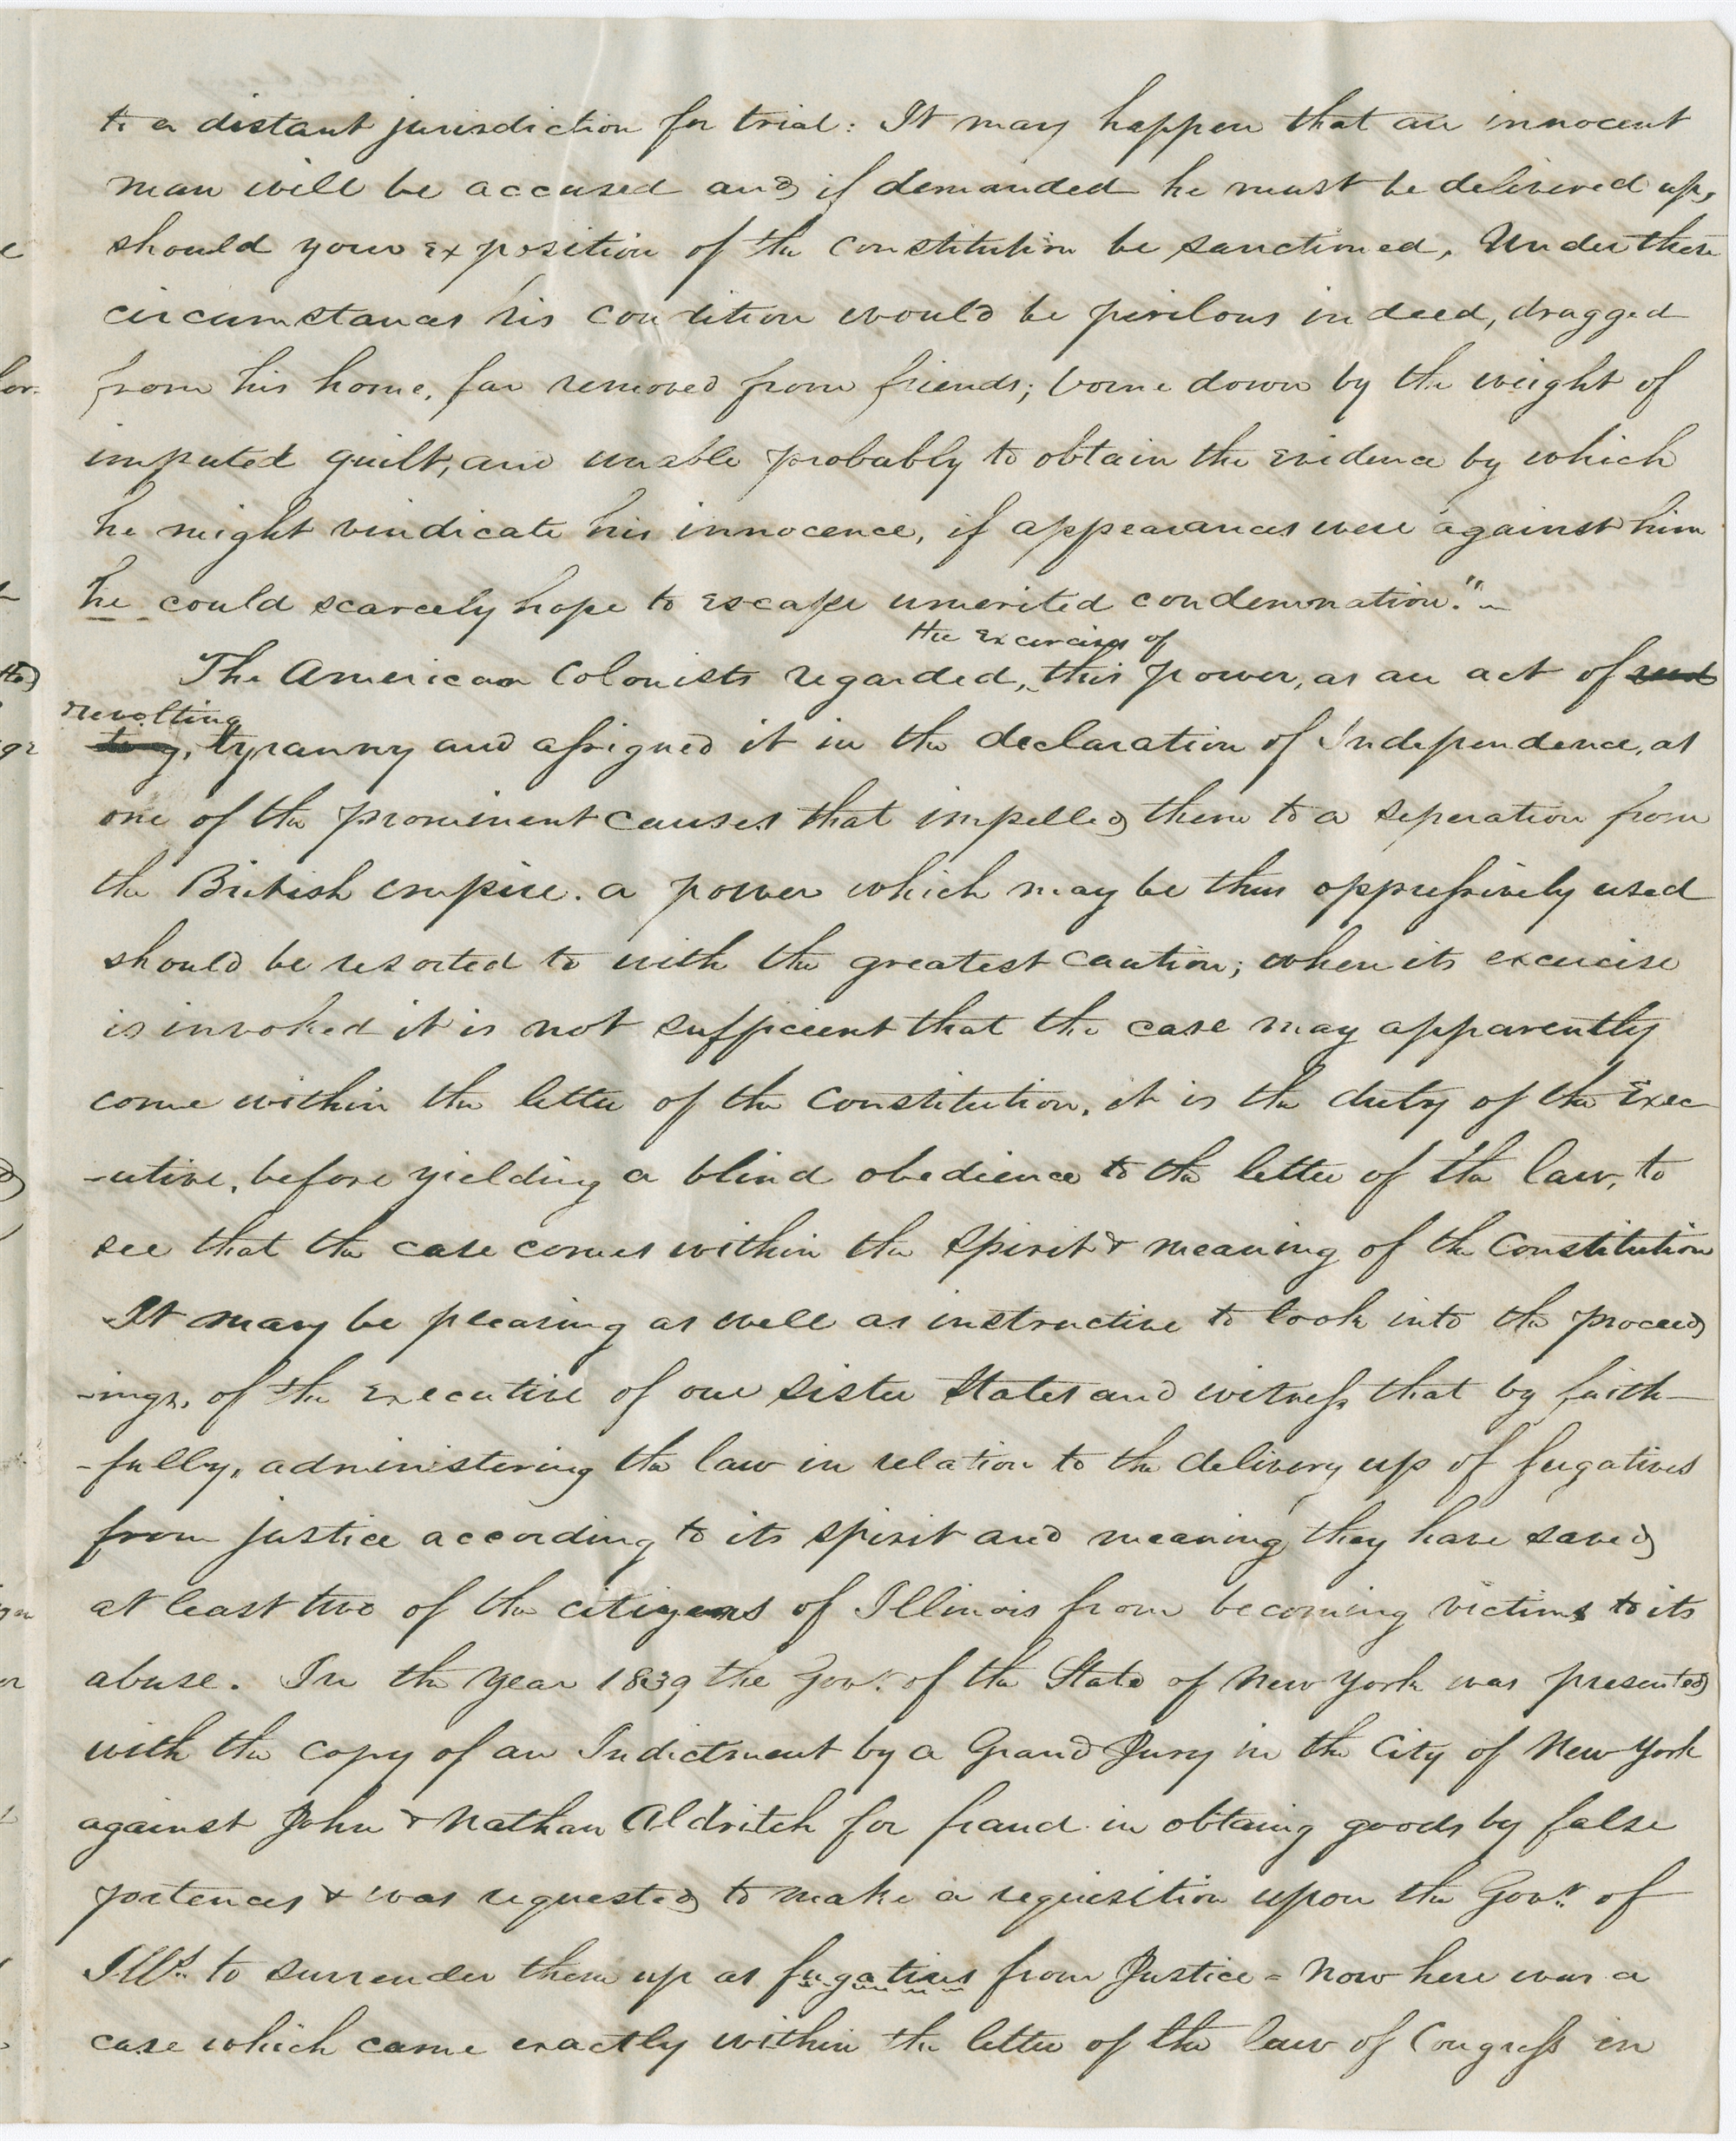 to a distant jurisdiction for trial: It may happen that an innocent
man will be accused and if demanded he must be delivered up,
should your exposition of the constitution be sanctioned, Under these
circumstances his condition would be perilous indeed, dragged
from his home, far removed from friends; borne down by the weight of
imputed guilt, and unable probably to obtain the evidence by which
he might vindicate his innocence, if appearances were against him
he could scarcely hope to escape unmerited condemnation."
the excercise of
The American Colonists regarded, this power, as an act of
revolting
tyranny and assigned it in the declaration of Independence, as
one of the prominent causes that impelled them to a seperation from
the British empire. a power which may be thus oppressively used
should be resorted to with the greatest caution; when its excercise
is invoked it is not sufficient that the case may apparently
come within the letter of the constitution, it is the duty of the Exec
-utive, before yielding a blind obedience to the letter of the law, to
see that the case comes within the spirit & meaning of the Constitution
It may be pleasing as well as instructive to look into the proceed
-ings, of the executive of our sister States and witness that by faith-
-fully, administering the law in relation to the delivery up of fugatives
from justice according to its spirit and meaning they have saved
at least two of the citizens of Illinois from becoming victims to its
abuse. In the year 1839 the Govr. of the State of New York was presented
with the copy of an Indictment by a Grand Jury in the City of New York
against John & Nathan Aldritch for fraud in obtaing goods by false
pretences & was requested to make a requisition upon the Govr. of
Ills. to surrender them up as fugatives from Justice - Now here was a
case which came exactly within the letter of the law of Congress in